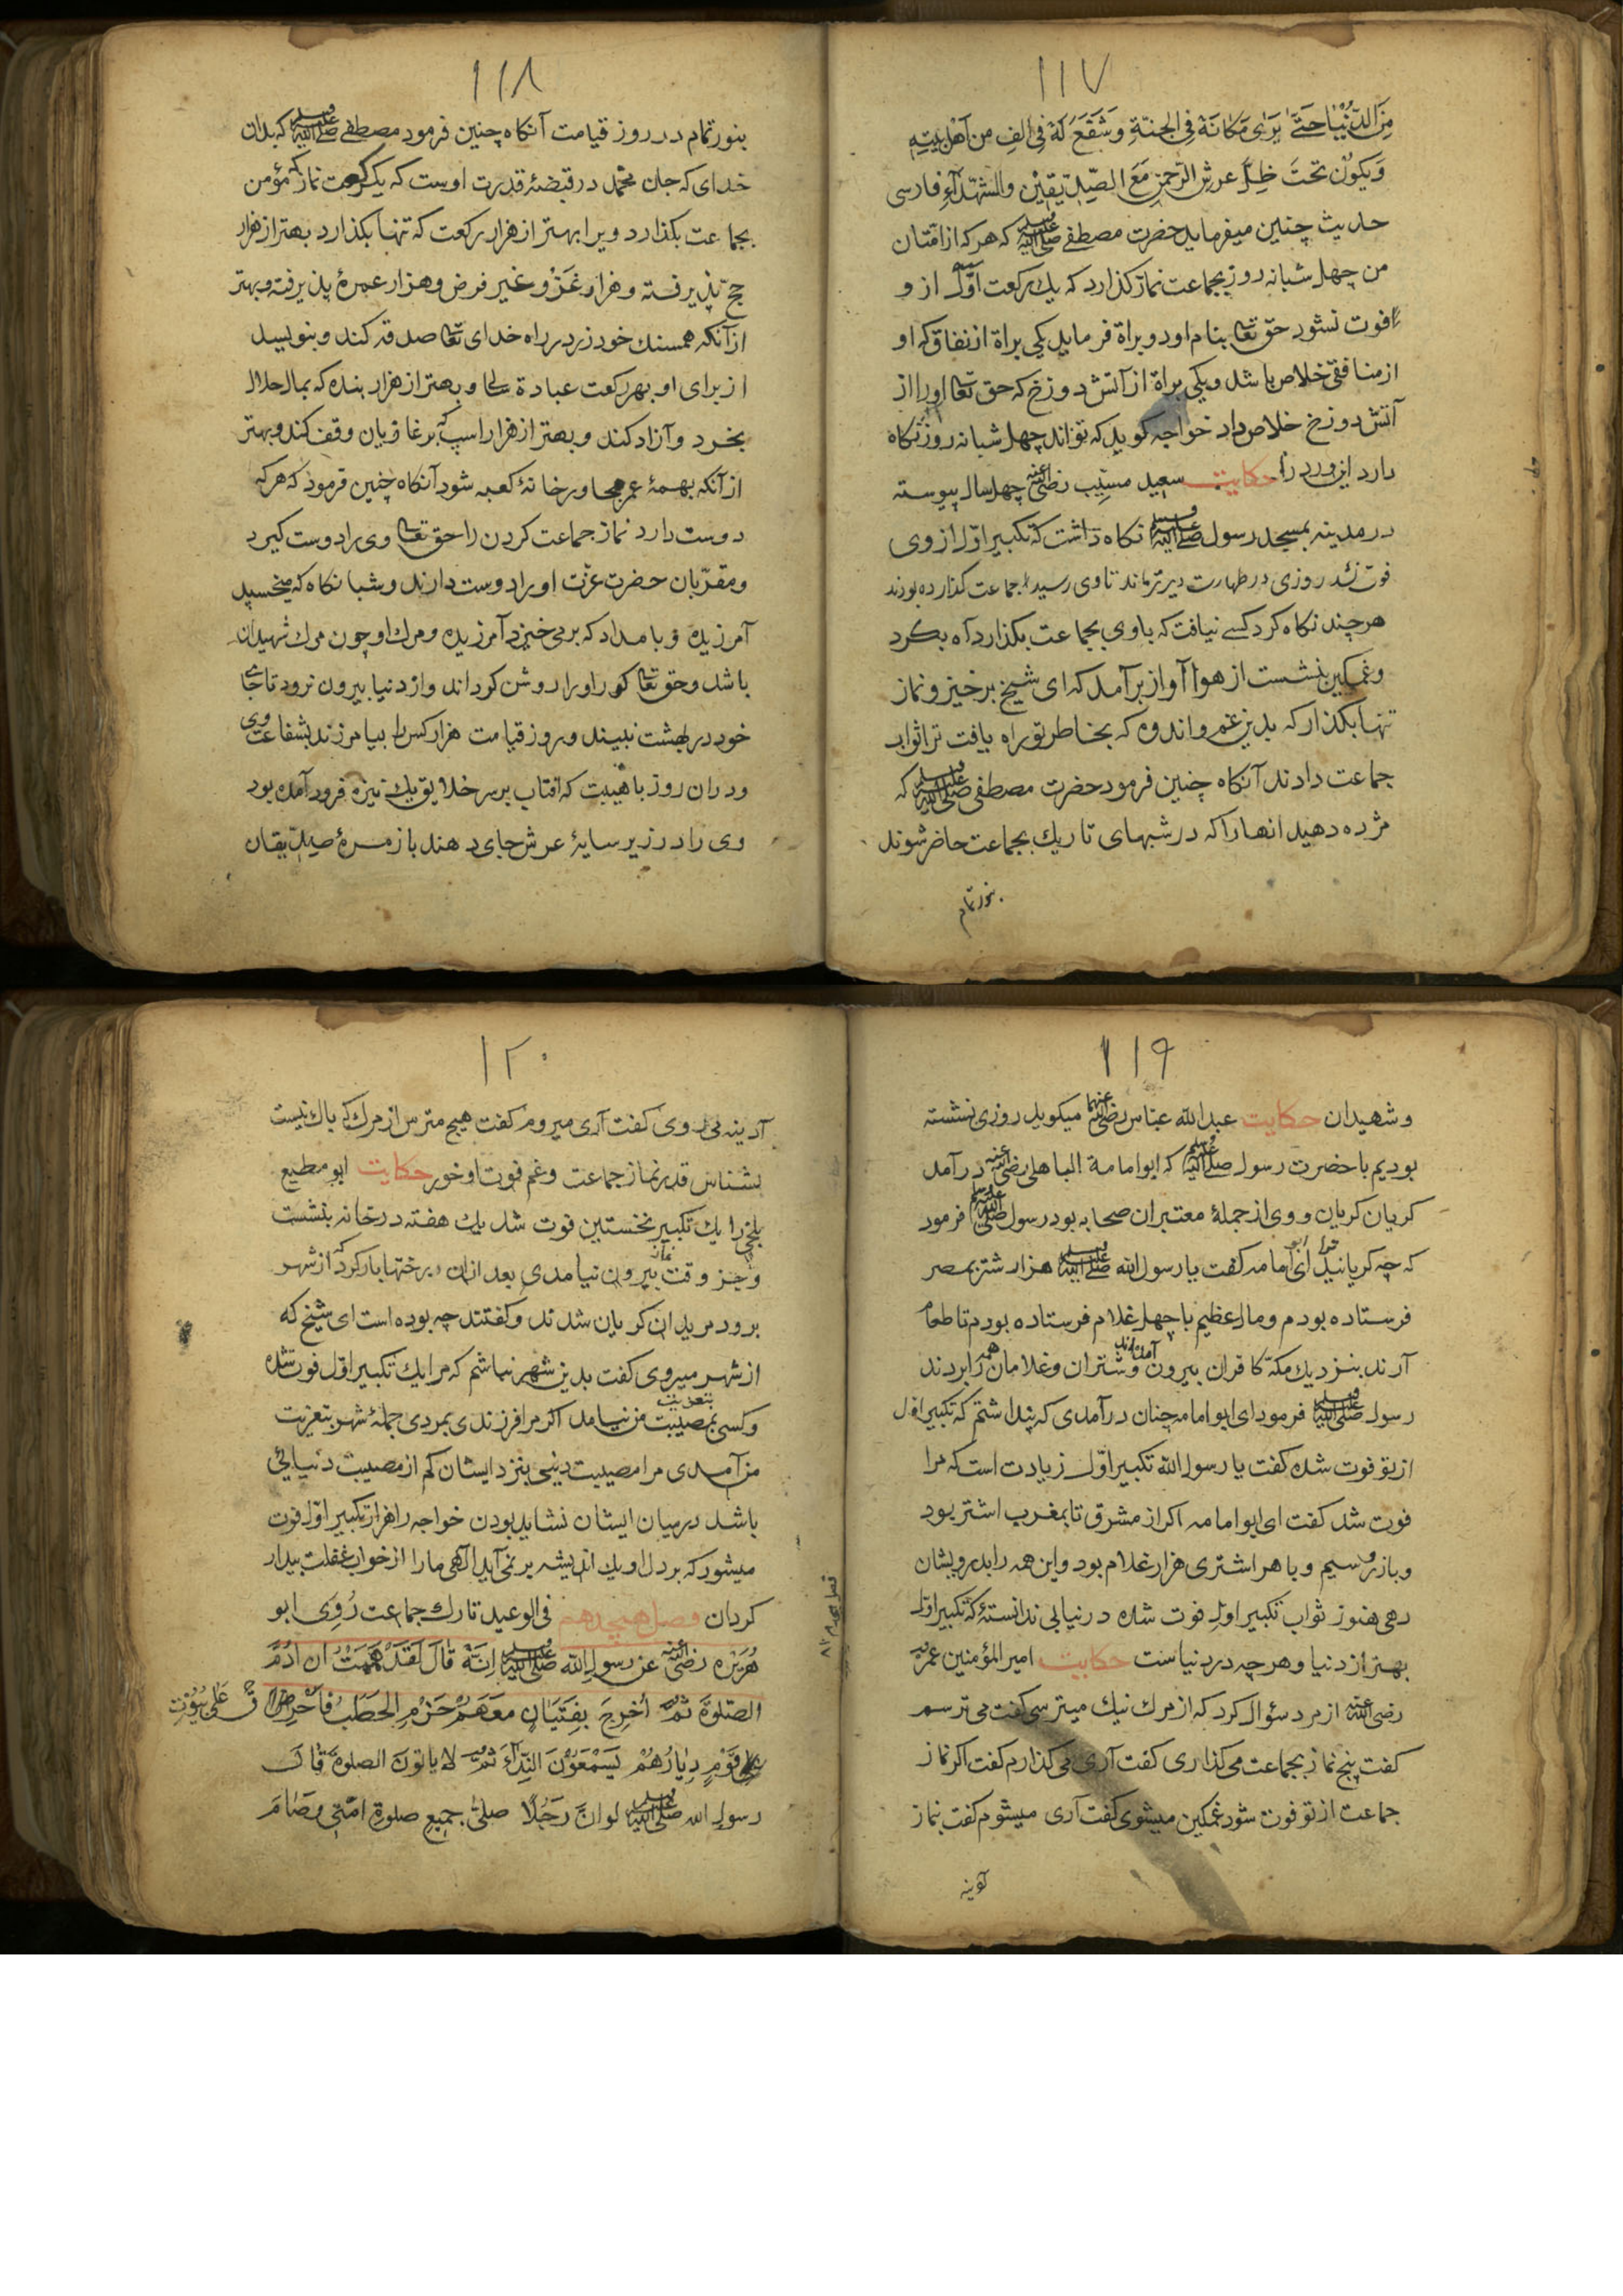 ١١٧
مِنَ الدُّنْيَا حَتّٰى يَرٰى مَكَانَهُ فِى الجنّةِ وَشَفَّعَ لَهُ فِى الفِ من اَهْلِ بَيْتِهِ
وَيَكُوْن تحتَ ظِلِّ عرشِ الرّحمنِ مَعَ الصِّدِّيقِيْن والشهدآءِ فارسى
حدیث چنین میفرماید حضرت مصطفى صلى الله عليه وسلم که هرکه از امّتان
من چهل شبانه روز بجماعت نماز کذارد که یك رکعت اوّل از و
فوت نشود حق تعا بنام او دو براة فرماید یکی براة از نفاق که او
از منافقی خلاص باشد ویکی براة از آتش دوزخ که حق تعا اورا از
آتش دوزخ خلاص داد خواجه کوید که تواند چهل شبانه روز نکاه
دارد این ورد را حکایت سعید مسیّب رضى الله عنه چهل سال پیوسته
در مدینه بمسجد رسول صلى الله عليه وسلم نکاه داشت که تکبیر اوّل از وی
فوت نشد روزی در طهارت دیرتر ماند تا وی رسید جماعت کذارده بودند
هرچند نکاه کرد کسے نیافت که باوی بجماعت بکذارد آه بکرد
وغمکین بنشست از هوا آواز برآمد که ای شیخ برخیز ونماز
تنها بکذار که بدین غم واندوه که بخاطر تو راه یافت ترا ثواب
جماعت دادند آنکاه چنین فرمود حضرت مصطفى صلى الله عليه وسلم که
مژده دهید انهارا که در شبهای تاریك بجماعت حاضر شوند
بنور تمام
١١٨
بنور تمام در روز قیامت آنکاه چنین فرمود مصطفے صلى الله عليه وسلم که بدان
خدای که جان محمّد در قبضۀ قدرت اوست که یک رکعت نماز که مؤمن
بجماعت بکذارد ویرا بهتر از هزار رکعت که تنها بکذارد بهتر از هزار
حجّ پذیرفته وهزار غَزْو غیر فرض وهزار عمرۀ پذیرفته وبهتر
ازآنکه همسنك خود زر در راه خدای تعا صدقه کند وبنویسد
از برای او بهر رکعت عبادة سالی وبهتر از هزار بنده که بمال حلال
بخرد وآزاد کند وبهتر از هزار اسپ که بر غازیان وقف کند وبهتر
ازآنکه بهمۀ عمر مجاور خانۀ کعبه شود آنکاه چنین فرمود که هرکه
دوست دارد نماز جماعت کردن را حق تعا وی را دوست کیرد
ومقرّبان حضرت عزّت اورا دوست دارند وشبانکاه که میخسپد
آمرزیده وبامداد که بر می خیزد آمرزیده ومرك او چون مرك شهیدان
باشد وحق تعا کور اورا روشن کرداند واز دنیا بیرون نرود تا جاے
خود در بهشت نبیند وروز قیامت هزار کس را بیامرزند بشفاعت وی
ودران روز باهیبت که افتاب بر سر خلایق یك نیزه فرود آمده بود
وی را در زیر سایۀ عرش جای دهند با زمرۀ صدّیقان
١١٩
وشهیدان حکایت عبدالله عبّاس رضى الله عنهما میکوید روزی نشسته
بودیم با حضرت رسول صلى الله عليه وسلم که ابو امامة الباهلى رضى الله عنه درآمد
کریان کریان ووی از جملۀ معتبران صحابه بود رسول صلى الله عليه وسلم فرمود
که چه کریانید ترا ای ابو امامه کفت یا رسول الله صلى الله عليه وسلم هزار شتر بمصر
فرستاده بودم ومال عظیم با چهل غلام فرستاده بودم تا طعام
آرند بنزدیك مکّه کافران بیرون آمده اند وشتران وغلامان همه را بردند
رسول صلى الله عليه وسلم فرمود ای ابو امامه چنان درآمدی که پنداشتم که تکبیر اوّل
از تو فوت شده کفت یا رسول الله تکبیر اوّل زیادت است که مرا
فوت شد کفت ای ابو امامه اکر از مشرق تا بمغرب اشتر بود
وبار زر وسیم وبا هر اشتری هزار غلام بود واین همه را بدرویشان
دهی هنوز ثواب تکبیر اوّل فوت شده در نیابی ندانستۀ که تکبیر اوّل
بهتر از دنیا وهرچه در دنیاست حکایت امیر المؤمنین عمر
رضى الله عنه از مرد سؤال کرد که از مرك نیك میترسی کفت می ترسم
کفت پنج نماز بجماعت می کذاری کفت آری می کذارم کفت اکر نماز
جماعت از تو فوت شود غمکین میشوی کفت آری میشوم کفت بنماز
آدینه
١٢٠
آدینه می روی کفت آری میروم کفت هیچ مترس از مرك که باك نیست
بشناس قدر نماز جماعت وغم فوت او خور حکایت ابو مطیع
بلخی را یك تکبیر نخستین فوت شد یك هفته در خانه بنشست
وجز وقت نماز بیرون نیامدی بعد ازان رختها بار کرد که از شهر
برود مریدان کریان شدند وکفتند چه بوده است ای شیخ که
از شهر میروی کفت بدین شهر نباشم که مرا یك تکبیر اوّل فوت شده
وکسی بمصیبت بتعزیت من نیامد اکر مرا فرزندی بمردی جملۀ شهر بتعزیت
من آمدی مرا مصیبت دینی بنزد ایشان کم از مصیبت دنیایی
باشد در میان ایشان نشاید بودن خواجه را هزار تکبیر اوّل فوت
میشود که بر دل او یك اندیشه بر نمی آید الٓهی مارا از خواب غفلت بیدار
کردان فصل هیچدهم فى الوعيد تارك جماعت رُوِىَ ابو
هُرَيْرَه رضى الله عنه عن رسول الله صلى الله عليه وسلم اِنَّهُ قَالَ لَقَدْ هَمَمْتُ ان
الصّلوةَ ثمّ اُخرِجَ بِفِتْيَانٍ مَعَهُمْ حَزْمِ الحَطَبُ فاُحْرِق عَلٰى بُيُوْتِ
قَوْمٍ دِيَارُهُمْ يَسْمَعُوْنَ النِّدَآءَ ثُمَّ لا ياتونَ الصلوةَ قالَ
رسول الله صلى الله عليه وسلم لو انّ رَجُلًا صلىّٰ جميع صلوةِ امّتى وصَامَ